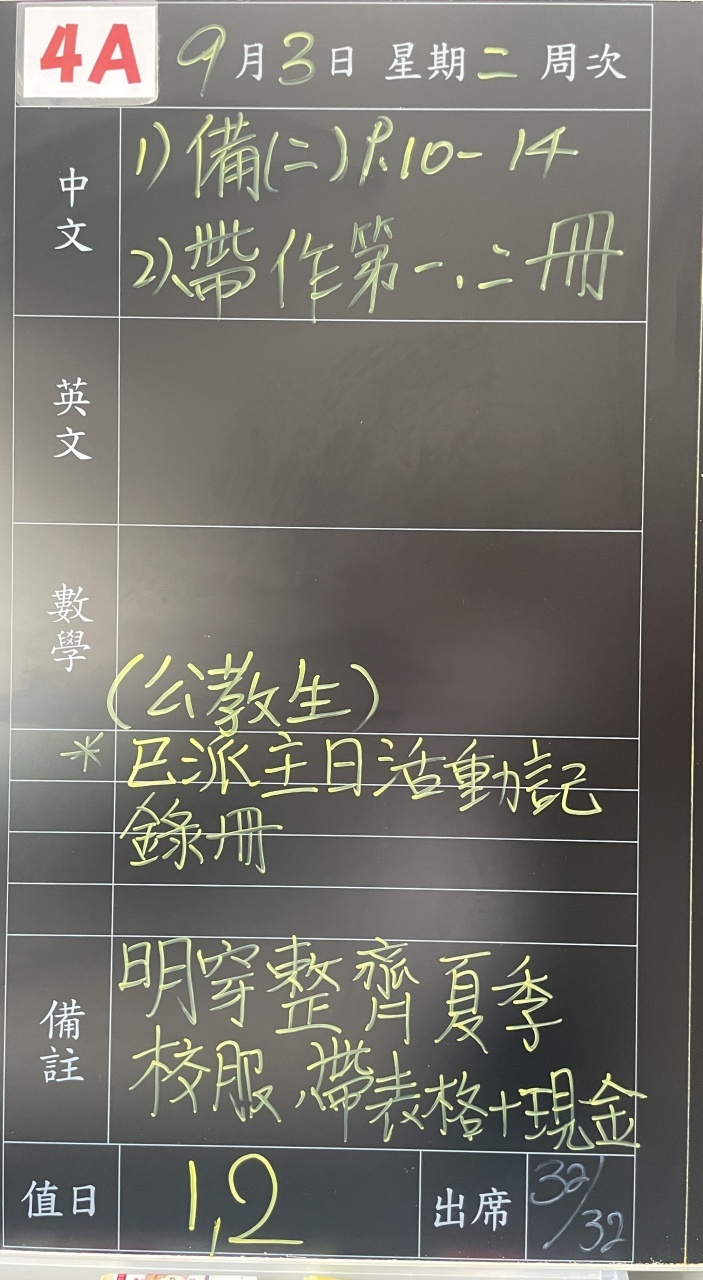 4A 9月3日 星期二 周次
中文
1) 備(二) P.10-14
2) 帶作第一、二冊
英文
數學
(公教生)
* 已派主日活動記
錄冊
備註
明穿整齊夏季
校服、帶表格+現金
值日 1,2 出席 32/32